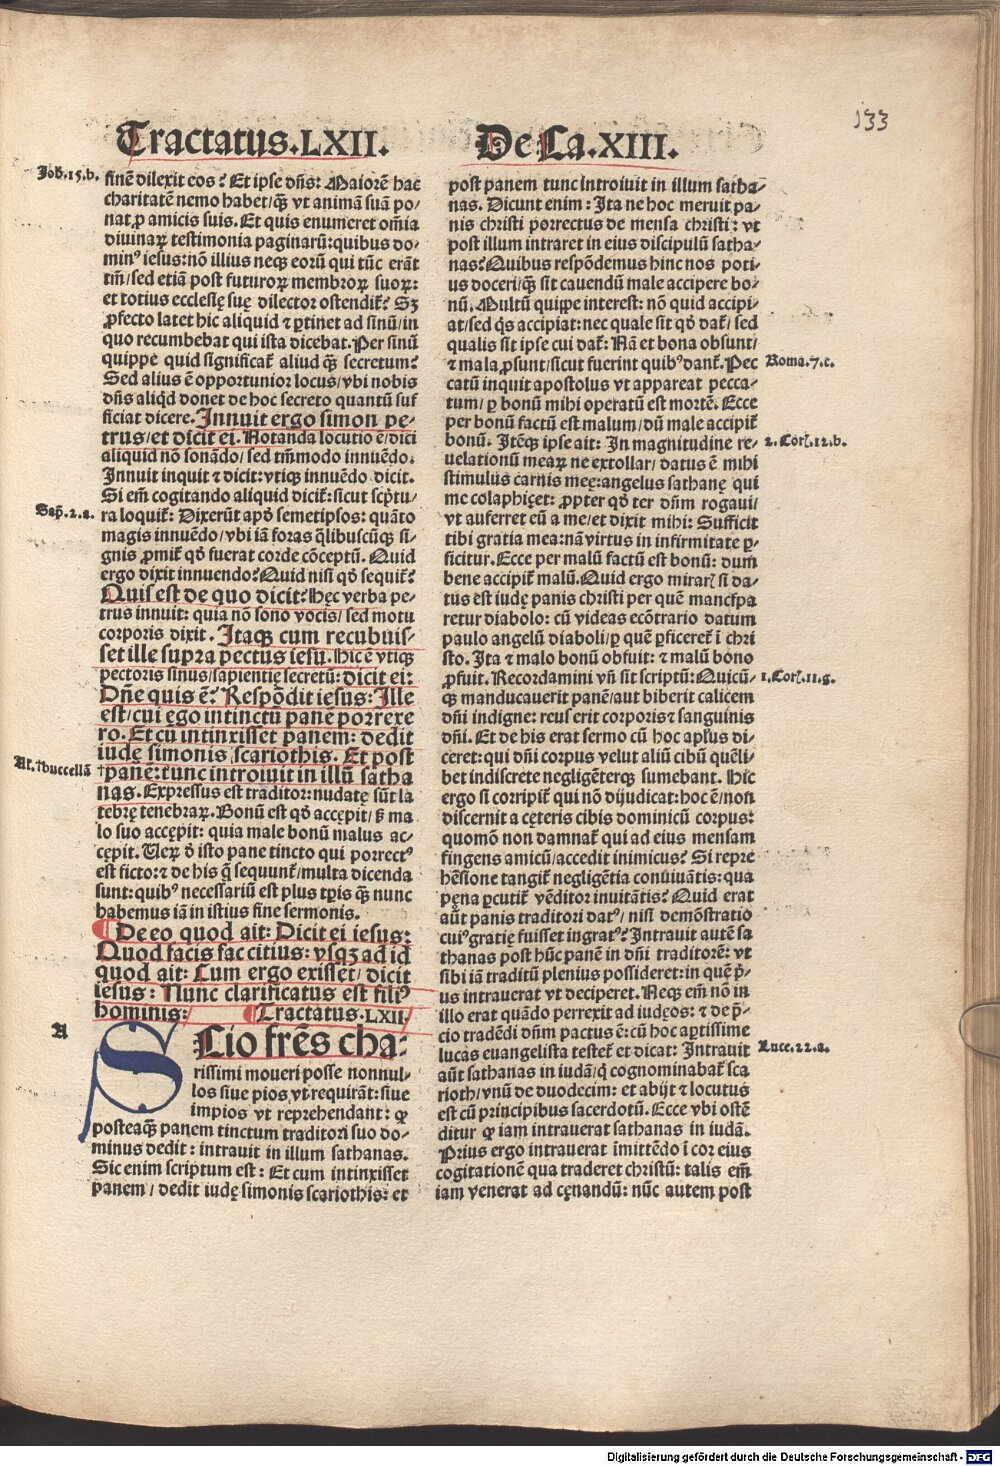 133
Tractatus.LXII. De Ca.XIII.
Joh.15.b.
finē dilexit eos? Et ipse dn̄s: Maiorē hac
charitatē nemo habet/qꝫ vt animā suā po⸗
nat ꝓ amicis suis. Et quis enumeret om̄ia
diuinaꝝ testimonia paginarū: quibus do⸗
minꝰ iesus: nō illius neqꝫ eorū qui tūc erāt
tm̄/sed etiā post futuroꝝ membroꝝ suoꝝ:
et totius ecclesię suę dilector ostendit᷑? Sꝫ
ꝓfecto latet hic aliquid ⁊ ꝑtinet ad sinū/in
quo recumbebat qui ista dicebat. Per sinū
quippe quid significat᷑ aliud qꝫ secretum?
Sed alius ē opportunior locus/vbi nobis
dn̄s aliqd̄ donet de hoc secreto quantū suf
ficiat dicere. Innuit ergo simon pe⸗
trus/et dicit ei. Notanda locutio ē/dici
aliquid nō sonādo/sed tm̄modo innuēdo.
Innuit inquit ⁊ dicit: vtiqꝫ innuēdo dicit.
Si em̄ cogitando aliquid dicit᷑: sicut scp̄tu⸗
Sap̄.2.a.
ra loquit᷑: Dixerūt apđ semetipsos: quāto
magis innuēdo/vbi iā foras q̄libuscūqꝫ si⸗
gnis ꝓmit᷑ qđ fuerat corde cōceptū. Quid
ergo dixit innuendo? Quid nisi qđ sequit᷑?
Quis est de quo dicit? Hęc verba pe⸗
trus innuit: quia nō sono vocis/sed motu
corporis dixit. Itaqꝫ cum recubuis⸗
set ille supra pectus iesu. Hic ē vtiqꝫ
pectoris sinus/sapientię secretū: dicit ei:
Dn̄e quis ē? Respōdit iesus: Ille
est/cui ego intinctū panē porrexe
ro. Et cū intinxisset panem: dedit
iudę simonis scariothis. Et post
Al.†buccellā
†panē: tunc introiuit in illū satha
nas. Expressus est traditor: nudatę sūt la
tebrę tenebraꝝ. Bonū est qđ accępit/ß ma
lo suo accępit: quia male bonū malus ac⸗
cępit. Ueꝝ đ isto pane tincto qui porrectꝰ
est ficto: ⁊ de his q̄ sequunt᷑/multa dicenda
sunt: quibꝰ necessariū est plus tp̄is qꝫ nunc
habemus iā in istius fine sermonis.
De eo quod ait: Dicit ei iesus:
Quod facis fac citius: vsqꝫ ad id
quod ait: Cum ergo exisset/dicit
iesus: Nunc clarificatus est filiꝰ
hominis: Tractatus.LXII.
A
SCio frēs cha⸗
rissimi moueri posse nonnul⸗
los siue pios vt requirāt: siue
impios vt reprehendant: ꝙ
posteaqꝫ panem tinctum traditori suo do⸗
minus dedit: intrauit in illum sathanas.
Sic enim scriptum est: Et cum intinxisset
panem/dedit iudę simonis scariothis: et
post panem tunc introiuit in illum satha⸗
nas. Dicunt enim: Ita ne hoc meruit pa⸗
nis christi porrectus de mensa christi: vt
post illum intraret in eius discipulū satha⸗
nas? Quibus respōdemus hinc nos poti⸗
us doceri/qꝫ sit cauendū male accipere bo⸗
nū. Multū quippe interest: nō quid accipi⸗
at/sed q̄s accipiat: nec quale sit qđ dat᷑/sed
qualis sit ipse cui dat᷑: Nā et bona obsunt/
⁊ mala ꝓsunt/sicut fuerint quibꝰ dant᷑. Pec
Roma.7.c.
catū inquit apostolus vt appareat pecca⸗
tum/ꝑ bonū mihi operatū est mortē. Ecce
per bonū factū est malum/dū male accipit᷑
bonū. Itēqꝫ ipse ait: In magnitudine re⸗
2.Coꝝ.12.b.
uelationū meaꝝ ne extollar/datus ē mihi
stimulus carnis meę: angelus sathanę qui
me colaphiçet: ꝓpter qđ ter dn̄m rogaui/
vt auferret eū a me/et dixit mihi: Sufficit
tibi gratia mea: nā virtus in infirmitate ꝑ⸗
ficitur. Ecce per malū factū est bonū: dum
bene accipit᷑ malū. Quid ergo miraꝝ si da⸗
tus est iudę panis christi per quē manciparetur
retur diabolo: cū videas ecōtrario datum
paulo angelū diaboli/ꝑ quē ꝑficeret᷑ ī chri
sto. Ita ⁊ malo bonū obfuit: ⁊ malū bono
ꝓfuit. Recordamini vn̄ sit scriptū: Quicū⸗
1.Coꝝ.11.g.
qꝫ manducauerit panē/aut biberit calicem
dn̄i indigne: reus erit corporis ⁊ sanguinis
dn̄i. Et de his erat sermo cū hoc apl̄us di⸗
ceret: qui dn̄i corpus velut aliū cibū quēli⸗
bet indiscrete negligēterqꝫ sumebant. Hic
ergo si corripit᷑ qui nō dijudicat: hoc ē/non
discernit a cęteris cibis dominicū corpus:
quomō non damnat᷑ qui ad eius mensam
fingens amicū/accedit inimicus? Si repre
hēsione tangit᷑ negligētia conuiuātis: qua
pęna ꝑcutit᷑ vēditor inuitātis? Quid erat
aūt panis traditori datꝰ/nisi demōstratio
cuiꝰ gratię fuisset ingratꝰ? Intrauit autē sa
thanas post hūc panē in dn̄i traditorē: vt
sibi iā traditū plenius possideret: in quē p̄⸗
us intrauerat vt deciperet. Neqꝫ em̄ nō in
illo erat quādo perrexit ad iudęos: ⁊ de p̄⸗
cio tradēdi dn̄m pactus ē: cū hoc aꝑtissime
lucas euangelista testet᷑ et dicat: Intrauit
Luce.22.a.
aūt sathanas in iudā/q̄ cognominabat᷑ sca
rioth/vnū de duodecim: et abijt ⁊ locutus
est cū principibus sacerdotū. Ecce vbi ostē
ditur ꝙ iam intrauerat sathanas in iudā.
Prius ergo intrauerat īmittēdo ī cor eius
cogitationē qua traderet christū: talis em̄
iam venerat ad cęnandū: nūc autem post
Digitalisierung gefördert durch die Deutsche Forschungsgemeinschaft - DFG